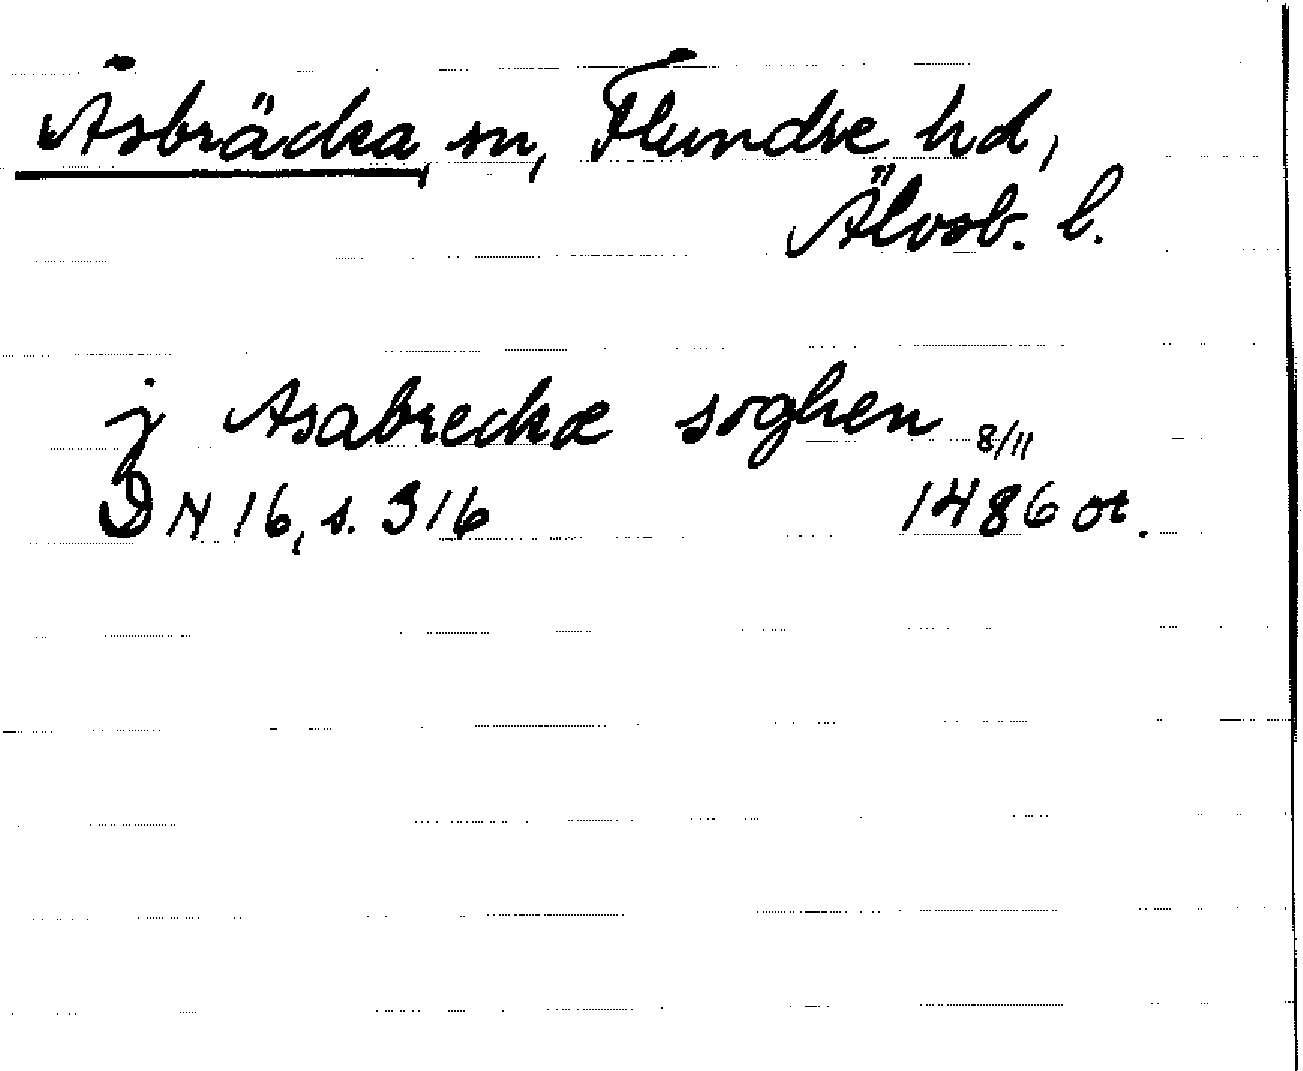 Åsbräcka, sn, Flundre hd,
Älvsb. l.
j Asabreckæ soghen 8/11
DN 16, s. 316 1486 or.